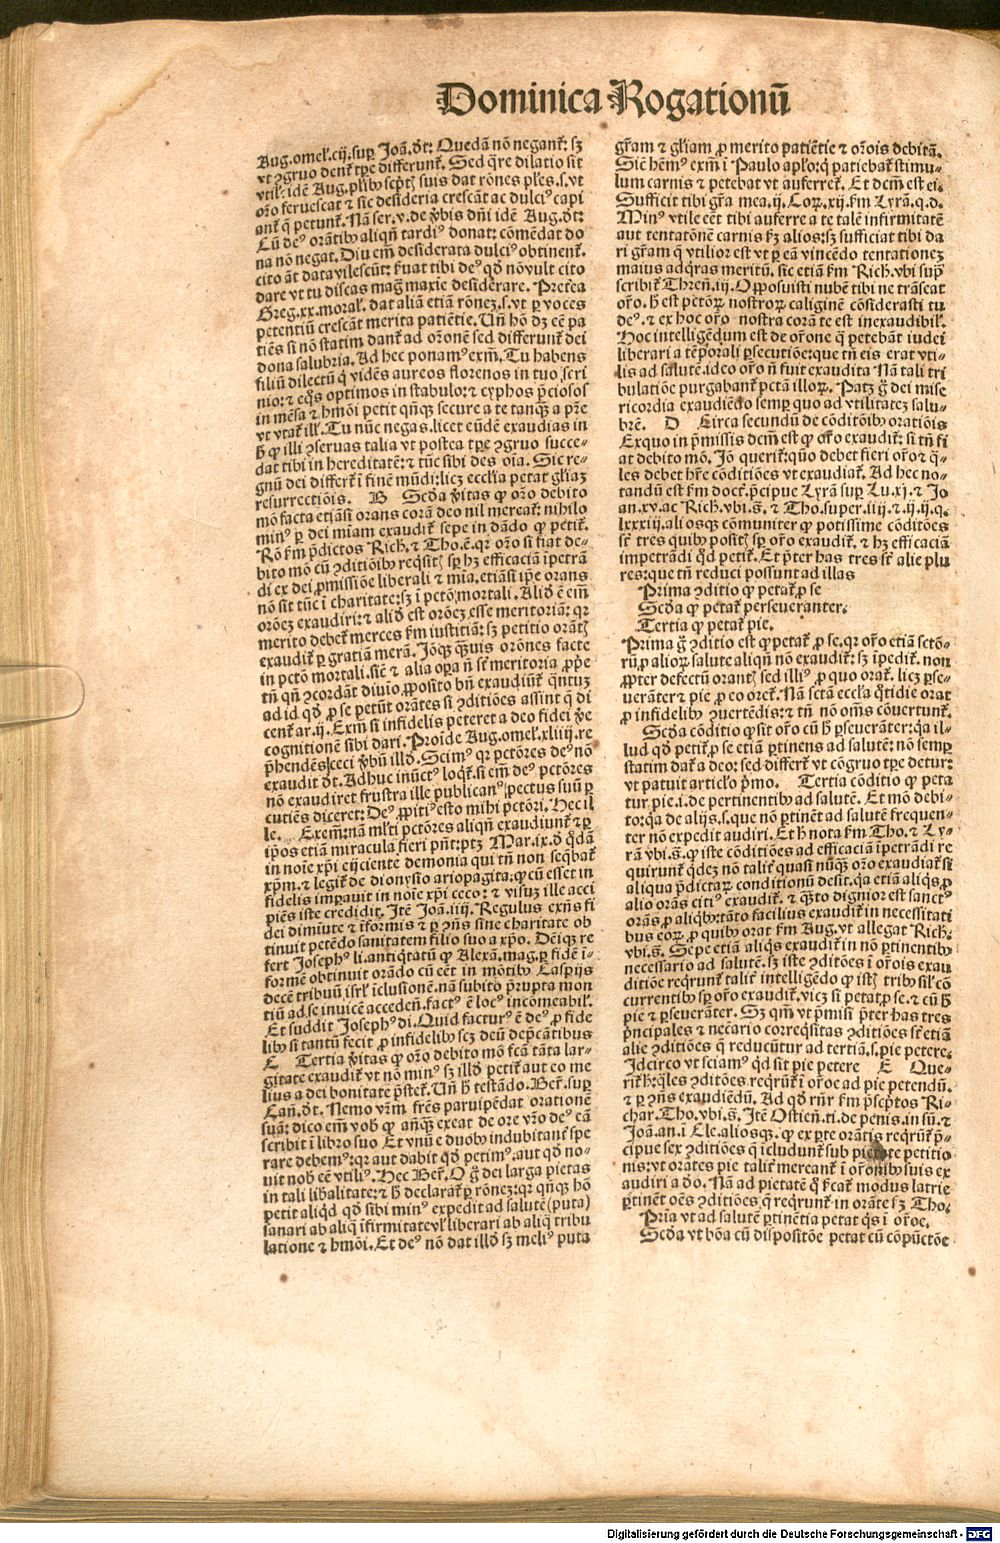 Dominica Rogationū
Aug. omel̓. cij. suꝑ Joā. ōt: Quedā nō negant̄: sꝫ
vt ꝯgruo dent̄ tꝑe differunt̄. Sed q̄re dilatio sit
vtil̓: idē Aug. pl̓ibꝰ scp̄t̄ suis dat rōnes pl̓es. s. vt
or̄o feruescat ⁊ sic desideria crescāt ac dulciꝰ capi
ant̄ q̄ petunt̄. Nā ser. v. de v̄bis dn̄i idē Aug. ōt:
Cū deꝰ orātibꝰ aliqn̄ tardiꝰ donat: cōmēdat do
na nō negat. Diu em̄ desiderata dulciꝰ obtinent̄.
cito āt data vilescūt: ẜuat tibi deꝰ qd̄ nō vult cito
dare vt tu discas maḡ maxie desiderare. Preterea
Greg. xx. moral̓. dat aliā etiā rōneꝫ. s. vt ꝑ voces
petentiū crescāt merita patiētie. Uñ hō dꝫ eē pa
tiēs si nō statim dant̄ ad or̄onē sed differunt̄ dei
dona salubria. Ad hec ponamꝰ exm̄. Tu habens
filiū dilectū q̄ vidēs aureos florenos in tuo scri
nio: ⁊ eq̄s optimos in stabulo: ⁊ cyphos p̄ciosos
in mēsa ⁊ hmōi petit qn̄qꝫ secure a te tanqꝫ a pr̄e
vt vtat̄ ill̓. Tu nūc negas. licet eūdē exaudias in
h̄ ꝙ illi ꝯseruas talia vt postea tꝑe ꝯgruo succe-
dāt tibi in hereditatē: ⁊ tūc sibi des oīa. Sic re-
gnū dei differt̄ ī finē mūdi: licꝫ eccl̓ia petat gl̓iaꝫ
resurrectiōis. B Scd̄a v̄itas ꝙ or̄o debito
mō facta etiāsi orans corā deo nil mereat̄: nihilo
minꝰ ꝑ dei miam exaudit̄ sepe in dādo ꝙ petit̄.
Rō ẜm p̄dictos Rich. ⁊ Tho. ē. qr or̄o si fiat de-
bito mō cū ꝯditiōibꝰ reqsit̄ sꝑ hꝫ efficaciā īpetrā
di ex dei ꝓmissiōe liberali ⁊ mia. etiāsi ip̄e orans
nō sit tūc ī charitate: sꝫ ī pctō mortali. Aliđ ē em̄
or̄oeꝫ exaudiri: ⁊ aliđ est or̄oeꝫ esse meritoriā: qr
merito debet̄ merces ẜm iustitiā: sꝫ petitio orāt̄
exaudit̄ ꝑ gratiam merā. Jōqꝫ qꝫuis orōnes facte
in pctō mortali. sic̄ ⁊ alia oꝑa n̄ st̄ meritoria ꝓp̄e
tn̄ qn̄ ꝯcordāt diuio ꝓposito bn̄ exaudiūt̄ qn̄tuꝫ
ad id qd̄ ꝓ se petūt orātes si ꝯditiōes assint q̄ di
cent̄ ar. ij. Exm̄ si infidelis peteret a deo fidei v̄e
cognitionē sibi dari. Proide Aug. omel̓. xliiij. re
p̄hendēs ceci v̄bū illđ. Scimꝰ qr pctōres deꝰ nō
exaudit ōt. Adhuc inūctꝰ loqt̄. si em̄ deꝰ pctōres
nō exaudiret frustra ille publicanꝰ pectus suū ꝑ
cutiēs diceret: Deꝰ ꝓpitiꝰ esto mihi pctōri. Hec il
le. Exem̄: nā ml̓ti pctōres aliqn̄ exaudiunt̄ ⁊ ꝑ
ip̄os etiā miracula fieri pn̄t: ptꝫ Mar. ix. đ q̄dā
in noīe xp̄i eijciente demonia qui tn̄ non seq̄bat̄
xp̄m. ⁊ legit̄ de dionysio ariopagita: ꝙ cū esset in
fidelis impauit in noīe xp̄i ceco: ⁊ visuꝫ ille acci
piēs iste credidit. Itē Joā. iiij. Regulus exn̄s fi
dei dimiute ⁊ īformis ⁊ ꝑ ꝯn̄s sine charitate ob
tinuit petēdo sanitatem filio suo a xp̄o. Dēiqꝫ re
fert Josephꝰ li. antiq̄tatū ꝙ Alexā. mag. ꝑ fidē ī-
formē obtinuit orādo cū eēt in mōtibꝰ Caspijs
decē tribuū isrl̓ īclusionē. nā subito p̄rupta mon
tiū ad se inuicē acceden̄. factꝰ ē locꝰ incōmeabil̓.
Et suddit Josephꝰ di. Quid facturꝰ ē deꝰ ꝓ fide
libꝰ si tantū fecit ꝓ infidelibꝰ scꝫ deū dep̄cātibus
C Tertia v̄itas ꝙ or̄o debito mō fc̄a tāta lar-
gitate exaudit̄ vt nō minꝰ sꝫ illđ petit̄ aut eo me
lius a dei bonitate p̄stet̄. Uñ h̄ testādo. Ber̄. suꝑ
Cañ. ōt. Nemo vr̄m fr̄es paruipēdat orationē
suā: dico em̄ vob̄ ꝙ añqꝫ exeat de ore vr̄o deꝰ eā
scribit ī libro suo Et vnū e duobꝰ indubitant̄ spe
rare debemꝰ: qr aut dabit qd̄ petimꝰ: aut qd̄ no-
uit nob̄ eē vtiliꝰ. Hec Ber̄. O ḡ dei larga pietas
in tali lib̄alitate: ⁊ h̄ declarat̄ ꝑ rōneꝫ: qr qn̄qꝫ hō
petit aliqđ qd̄ sibi minꝰ expedit ad salutē (puta)
sanari ab aliq̄ īfirmitate vl̓ liberari ab aliq̄ tribu
latione ⁊ hmōi. Et deꝰ nō dat illđ sꝫ meliꝰ puta
gr̄am ⁊ gl̓iam ꝓ merito patiētie ⁊ or̄ois debitā.
Sic̄ hēmꝰ exm̄ ī Paulo apl̓o: q̄ patiebat̄ stimu-
lum carnis ⁊ petebat vt auferret̄. Et dcm̄ est ei.
Sufficit tibi gr̄a mea. ij. Coꝝ. xij. ẜm Lyrā. q. d.
Minꝰ vtile eēt tibi auferre a te talē infirmitatē
aut tentatōnē carnis ẜꝫ alios: sꝫ sufficiat tibi da
ri gr̄am q̄ vtilior est vt ꝑ eā vincēdo tentationeꝫ
maius adq̄ras meritū. sic etiā ẜm Rich. vbi supͣ
scribit̄ Thren̄. iij. Opposuisti nubē tibi ne trāseat
or̄o. h̄ est pctōꝝ nostroꝝ caliginē cōsiderasti tu
deꝰ. ⁊ ex hoc or̄o nostra corā te est inexaudibil̓.
Hoc intelligēdum est de or̄one q̄ petebāt iudei
liberari a tēporali ꝑsecutiōe: que tn̄ eis erat vti-
lis ad salutē. ideo or̄o n̄ fuit exaudita Nā tali tri
bulatiōe purgabant̄ pctā illoꝝ. Patꝫ ḡ dei mise
ricordia exaudiēdo semꝑ quo ad vtilitateꝫ salu-
brē. D Circa secundū de cōditōibꝰ oratiōis
Exquo in p̄missis dcm̄ est ꝙ or̄o exaudit̄: si tn̄ fi
at debito mō. Jō querit̄: quō debet fieri or̄o ⁊ q̄-
les debet hr̄e cōditiōes vt exaudiat̄. Ad hec no-
tandū est ẜm doct. p̄cipue Lyrā suꝑ Lu. xj. ⁊ Jo
an. xv. ac Rich. vbi s̄. ⁊ Tho. super. iiij. ⁊ ij. ij. q.
lxxxiij. aliosqꝫ cōmuniter ꝙ potissime cōditōes
st̄ tres quibꝰ posit̄ sꝑ or̄o exaudit̄. ⁊ hꝫ efficaciā
impetrādi qd̄ petit̄. Et p̄ter has tres st̄ alie plu
res: que tn̄ reduci possunt ad illas
Prima ꝯditio ꝙ petat̄ ꝓ se
Scd̄a ꝙ petat̄ perseueranter.
Tertia ꝙ petat̄ pie.
Prima ḡ ꝯditio est ꝙ petat̄ ꝓ se. qr or̄o etiā sctō-
rū ꝓ alioꝝ salute aliqn̄ nō exaudit̄: sꝫ īpedit̄. non
ꝓpter defectū orant̄ sed illiꝰ ꝓ quo orat̄. licꝫ ꝑse-
uerāter ⁊ pie ꝓ eo oret̄. Nā sctā eccl̓ia q̄tidie orat
ꝓ infidelibꝰ ꝯuertēdis: ⁊ tn̄ nō om̄s cōuertunt̄.
Scd̄a cōditio ꝙ sit or̄o cū h̄ ꝑseuerāter: qꝛ il-
lud qd̄ petit̄ ꝓ se etiā ꝑtinens ad salutē: nō semꝑ
statim dat̄ a deo: sed differt̄ vt cōgruo tꝑe detur:
vt patuit articl̓o pͥmo. Tertia cōditio ꝙ peta
tur pie. i. de pertinentibꝰ ad salutē. Et mō debi-
to: qꝛ de alijs. s. que nō ꝑtinēt ad salutē frequen-
ter nō expedit audiri. Et h̄ nota ẜm Tho. ⁊ Ly-
rā vbi. s̄. ꝙ iste cōditiōes ad efficaciā īpetrādi re
quirunt̄ qdeꝫ nō talit̄ quasi nūqꝫ or̄o exaudiat̄ si
aliqua p̄dictaꝝ conditionū desit. qꝛ etiā aliqs ꝓ
alio orās citiꝰ exaudit̄. ⁊ qꝫto dignior est sanctꝰ
orās ꝓ aliqbꝰ: tāto facilius exaudit̄ in necessitati
bus eoꝝ ꝓ quibꝰ orat̄ ẜm Aug. vt allegat Rich.
vbi. s̄. Sepe etiā aliqs exaudit̄ in nō ꝑtinentibꝰ
necessario ad salutē. sꝫ iste ꝯditiōes ī or̄ois exau
ditiōe reqrunt̄ talit̄ intelligēdo ꝙ ist̄ tribꝰ sil̓ cō
currentibꝰ sꝑ or̄o exaudit̄. vicꝫ si petat̄ ꝓ se. ⁊ cū h̄
pie ⁊ ꝑseuerāter. Sꝫ qm̄ vt p̄misi p̄ter has tres
pͥncipales ⁊ neccārio correqsitas ꝯditiōes st̄ etiā
alie ꝯditiōes q̄ reducūtur ad tertiā. s. pie petere.
Idcirco vt sciamꝰ qd̄ sit pie petere E Que-
rit̄ h̄: q̄les ꝯditōes reqrūt̄ ī or̄oe ad pie petendū.
⁊ ꝑ ꝯn̄s exaudiēdū. Ad qd̄ rn̄r ẜm p̄scp̄tos Ri-
char. Tho. vbi. s̄. Itē Ostien̄. ti. de penis. in sū. ⁊
Joā. an. ī Cle. aliosqꝫ. ꝙ ex ꝑte orātis reqrūt̄ p̄-
cipue sex ꝯditiōes q̄ īcludunt̄ sub pietate petitio
nis: vt orātes pie talit̄ mereant̄ ī or̄onibꝰ suis ex
audiri a do. Nā ad pietatē q̄ ẜcat̄ modus latrie
ꝑtinēt oēs ꝯditiōes q̄ reqrunt̄ in orāte ẜꝫ Tho.
Pͥma vt ad salutē ꝑtinētia petat qs ī or̄oe.
Scd̄a vt bōa cū dispositōe petat cū cōpūctōe
Digitalisierung gefördert durch die Deutsche Forschungsgemeinschaft - DFG